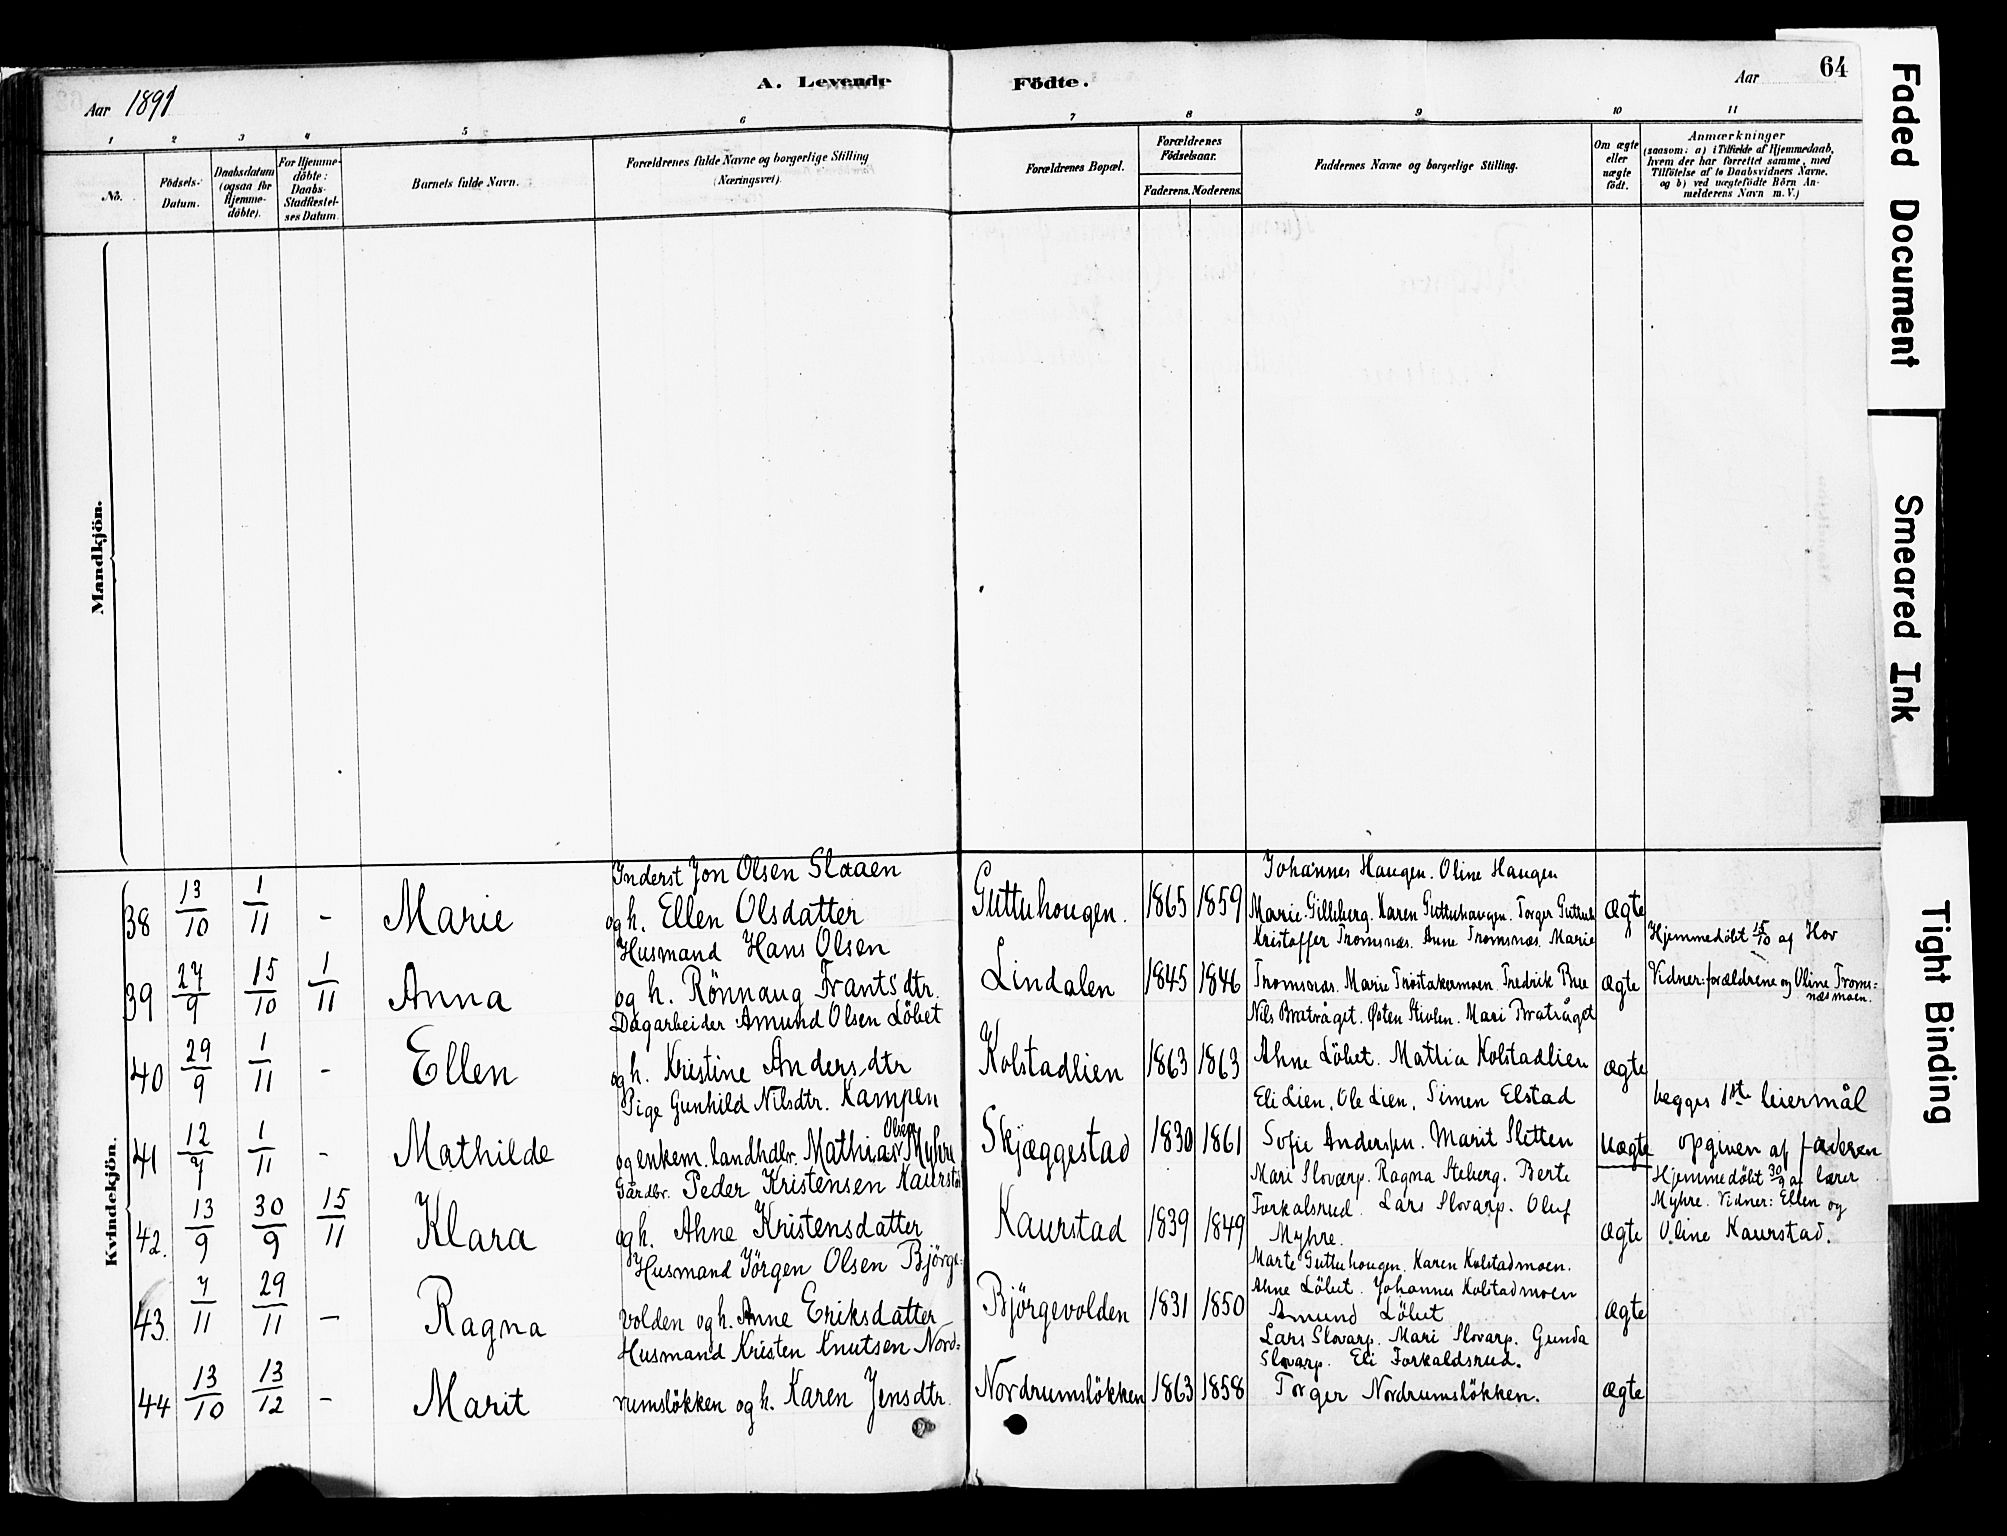 Aar 1891
A. Levende Födte.
Aar
64
1 2 3 4 5 6 7 8 9 10 11
No.
Födsels-Datum.
Daabsdatum (ogsaa for Hjemme-döbte).
For Hjemme-döbte: Daabs-Stadfæstel-ses Datum.
Barnets fulde Navn.
Forældrenes fulde Navne og borgerlige Stilling (Næringsvei).
Forældrenes Bopæl.
Forældrenes Födselsaar.
Faderens. Moderens.
Faddernes Navne og borgerlige Stilling.
Om ægte eller uægte födt.
Anmærkninger
(saasom: a) i Tilfælde af Hjemmedaab,
hvem der har forrettet samme, med
Tilföielse af to Daabsvidners Navne,
og b) ved uægtefödte Börn An-
melderens Navn m. V.)
Mandkjön.
Kvindekjön.
38 13/10 1/11 - Marie
Inderst Jon Olsen Slaaen
og h. Ellen Olsdatter
Guttuhougen. 1865 1859
Johannes Haugen. Oline Haugen
Marie Gilleberg. Karen Guttuhaugen. Torger Guttuh
ægte
39 27/9 15/10 1/11 Anna
Husmand Hans Olsen
og h. Rönnaug Frants dtr.
Lindalen 1845 1846
Kristoffer Tromsnæs. Anne Tromsnæs. Marie
Tromsnæs. Marie Trøstakermoen. Fredrik
ægte
Hjemmedöbt 15/10 af Hov
Vidner: forældrene og Oline Troms=
næsmoen.
40 29/9 1/11 - Ellen
Dagarbeider Amund Olsen Löbet
og h. Kristine Anders dtr
Kolstadlien 1863 1863
Nils Bratråget. Østen Stivlen. Mari Bratråget
Ahne Löbet. Mathia Kolstadlien
ægte
41 12/7 1/11 - Mathilde
Pige Gunhild Nilsdtr. Kampen
og enkem. landhdlr. Mathias Olsen Myhre
Skjæggestad 1830 1861
Eli Lien. Ole Lien. Simen Elstad
Sofie Andersen. Marit Sletten
uægte
begges 1ste leiermål
opgiven af faderen
42. 13/9 30/9 15/11 Klara
Gårdbr. Peder Kristensen Kaurstad
og h. Ahne Kristensdatter
Kaurstad 1839 1849
Mari Slovarp. Ragna Steberg. Berte
Forkalsrud. Lars Slovarp. Oluf
Myhre.
ægte
Hjemmedöbt 30/9 af lærer
Myhre. Vidner: Ellen og
Oline Kaurstad.
43. 7/11 29/11 - Ragna
Husmand Jörgen Olsen Björge=
volden og h. Anne Eriksdatter
Björgevolden 1831 1850
Marte Guttuhougen. Karen Kolstadmoen.
Ahne Löbet. Johannes Kolstadmoen
Amund Löbet
ægte
44 13/10 13/12 - Marit
Husmand Kristen Knutsen Nord=
rumslökken og h. Karen Jensdtr.
Nordrumslökken 1863 1858
Lars Slovarp. Mari Slovarp. Gunda
Slovarp. Eli Forkaldsrud.
Torger Nordrumslökken.
ægte
Faded Document
Smeared Ink
Tight Binding